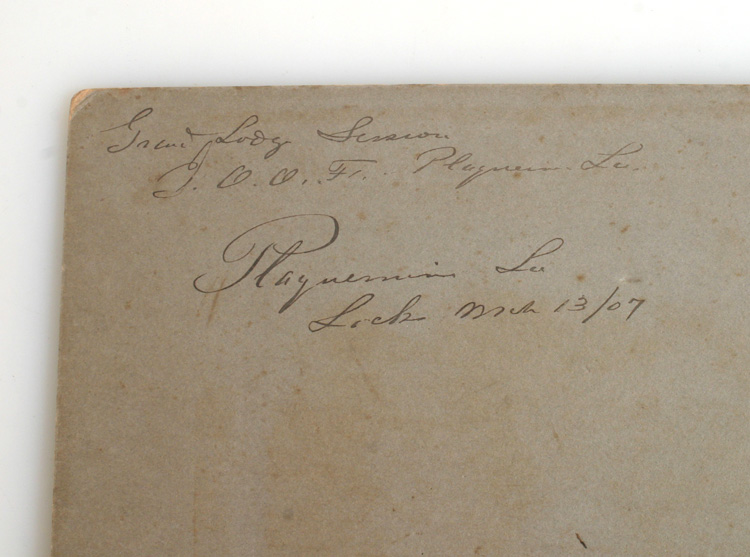 Grand Lodg Session
I. O. O. F. Plaquemin La.
Plaquemine La
Lock Mch 13/07